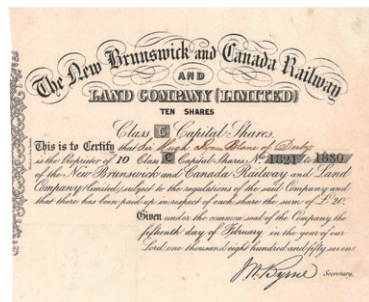 The New Brunswick and Canada Railway
AND
LAND COMPANY (LIMITED)
TEN SHARES
Class C Capital Shares.
This is to Certify that Sir Hugh Blane of Derby
is the Proprietor of 10 Class C Capital Shares No. 1821 to 1830
of the New Brunswick and Canada Railway and Land
Company Limited, subject to the regulations of the said Company and
that there has been paid up in respect of each share the sum of £20.
Given under the common seal of the Company the
fifteenth day of February in the year of our
Lord one thousand eight hundred and fifty seven
J W Byrne Secretary.